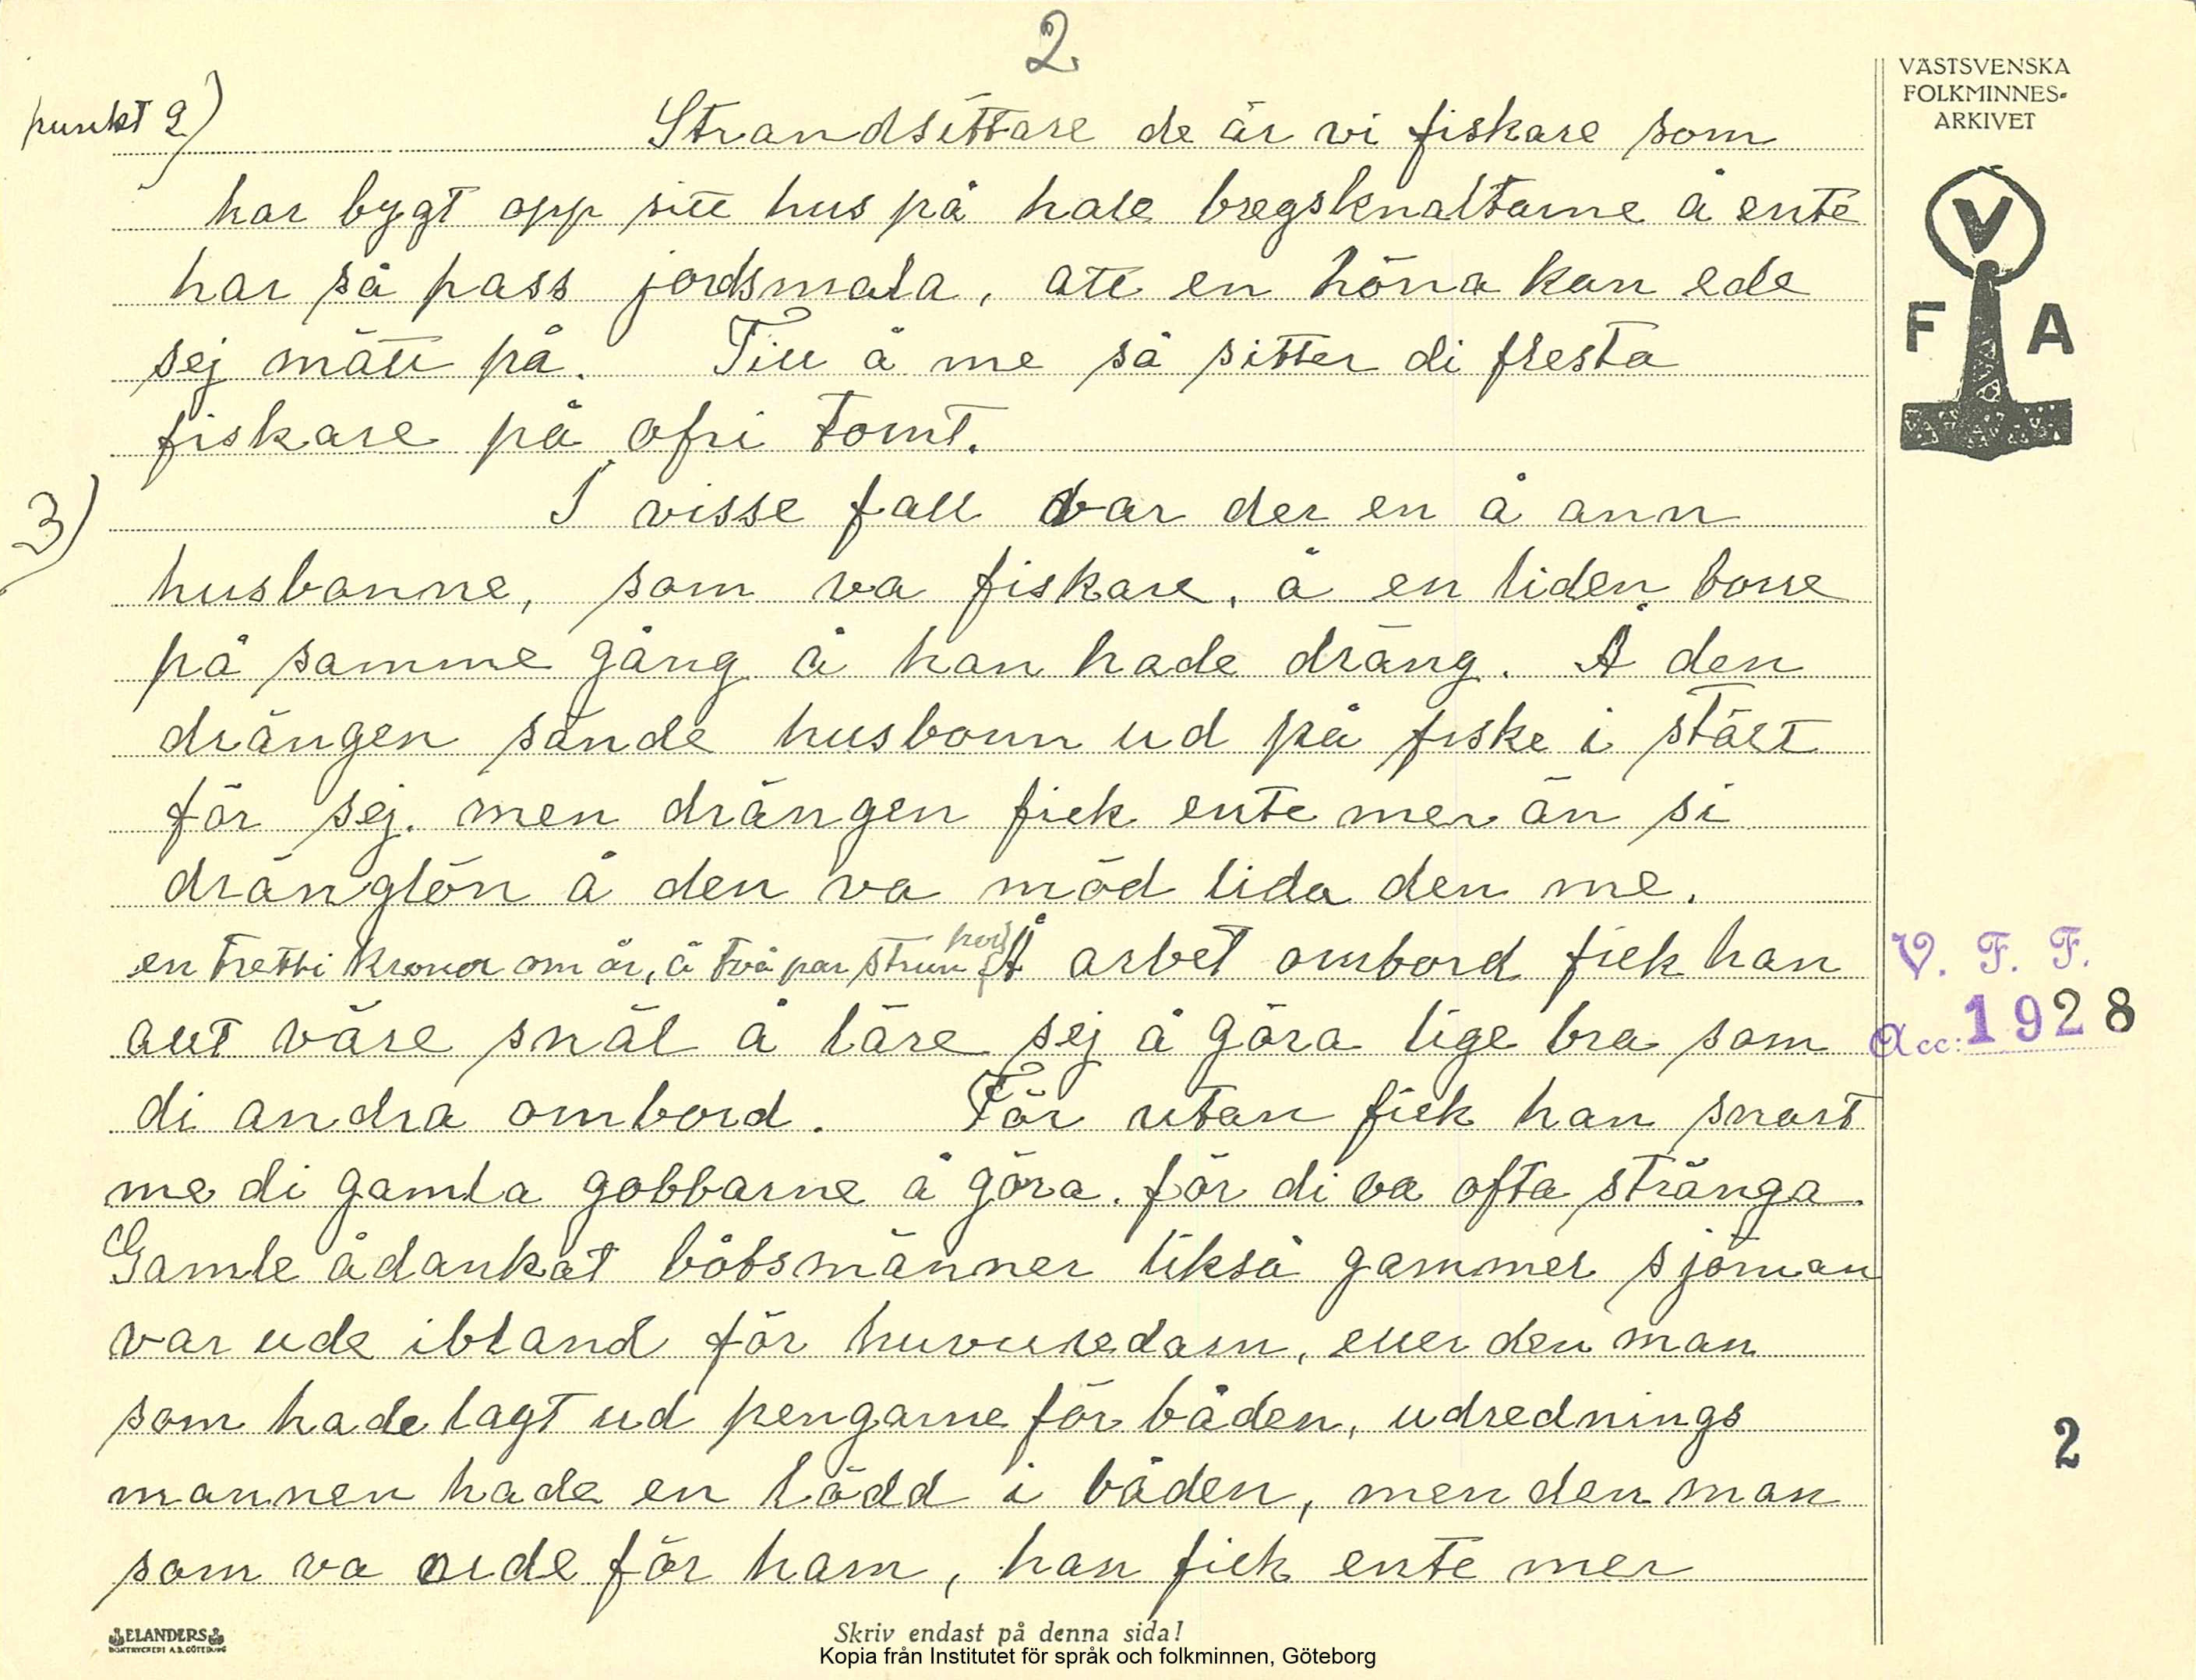 2
VÄSTSVENSKA
FOLKMINNES-
ARKIVET
V
F A
punkt 2) Strandsittare de är vi fiskare som
har bygt opp sitt hus på hale bregsknaltarne å ente
har så pass jordsmala, att en höna kan ede
sej mätt på. Till å me så sitter di flesta
fiskare på ofri tomt.
3) I visse fall var der en å ann
husbonne, som va fiskare, å en liden bone
på samme gång å han hade dräng. Å den
drängen sände husbonn ud på fiske i stält
för sej. men drängen fick ente mer än si
dränglön å den va möd lida den me.
en tretti kronor om år, å två par strumpor Å arbet ombord fick han
allt väre snäl å läre sej å göra lige bra som
di andra ombord. För utan fick han snart
me di gamla gobbarne å göra. för di va ofta stränga.
Gamle ådankat båtsmänner likså gammel sjöman
var ude ibland för huvuredarn, eller den man
som hade lagt ud pengarne för båden, udrednings
mannen hade en lödd i båden, men den man
som va ude för ham, han fick ente mer
V. F. F.
Acc: 1928
2
ELANDERS
BOKTRYCKERI A.B. GÖTEBORG
Skriv endast på denna sida!
Kopia från Institutet för språk och folkminnen, Göteborg